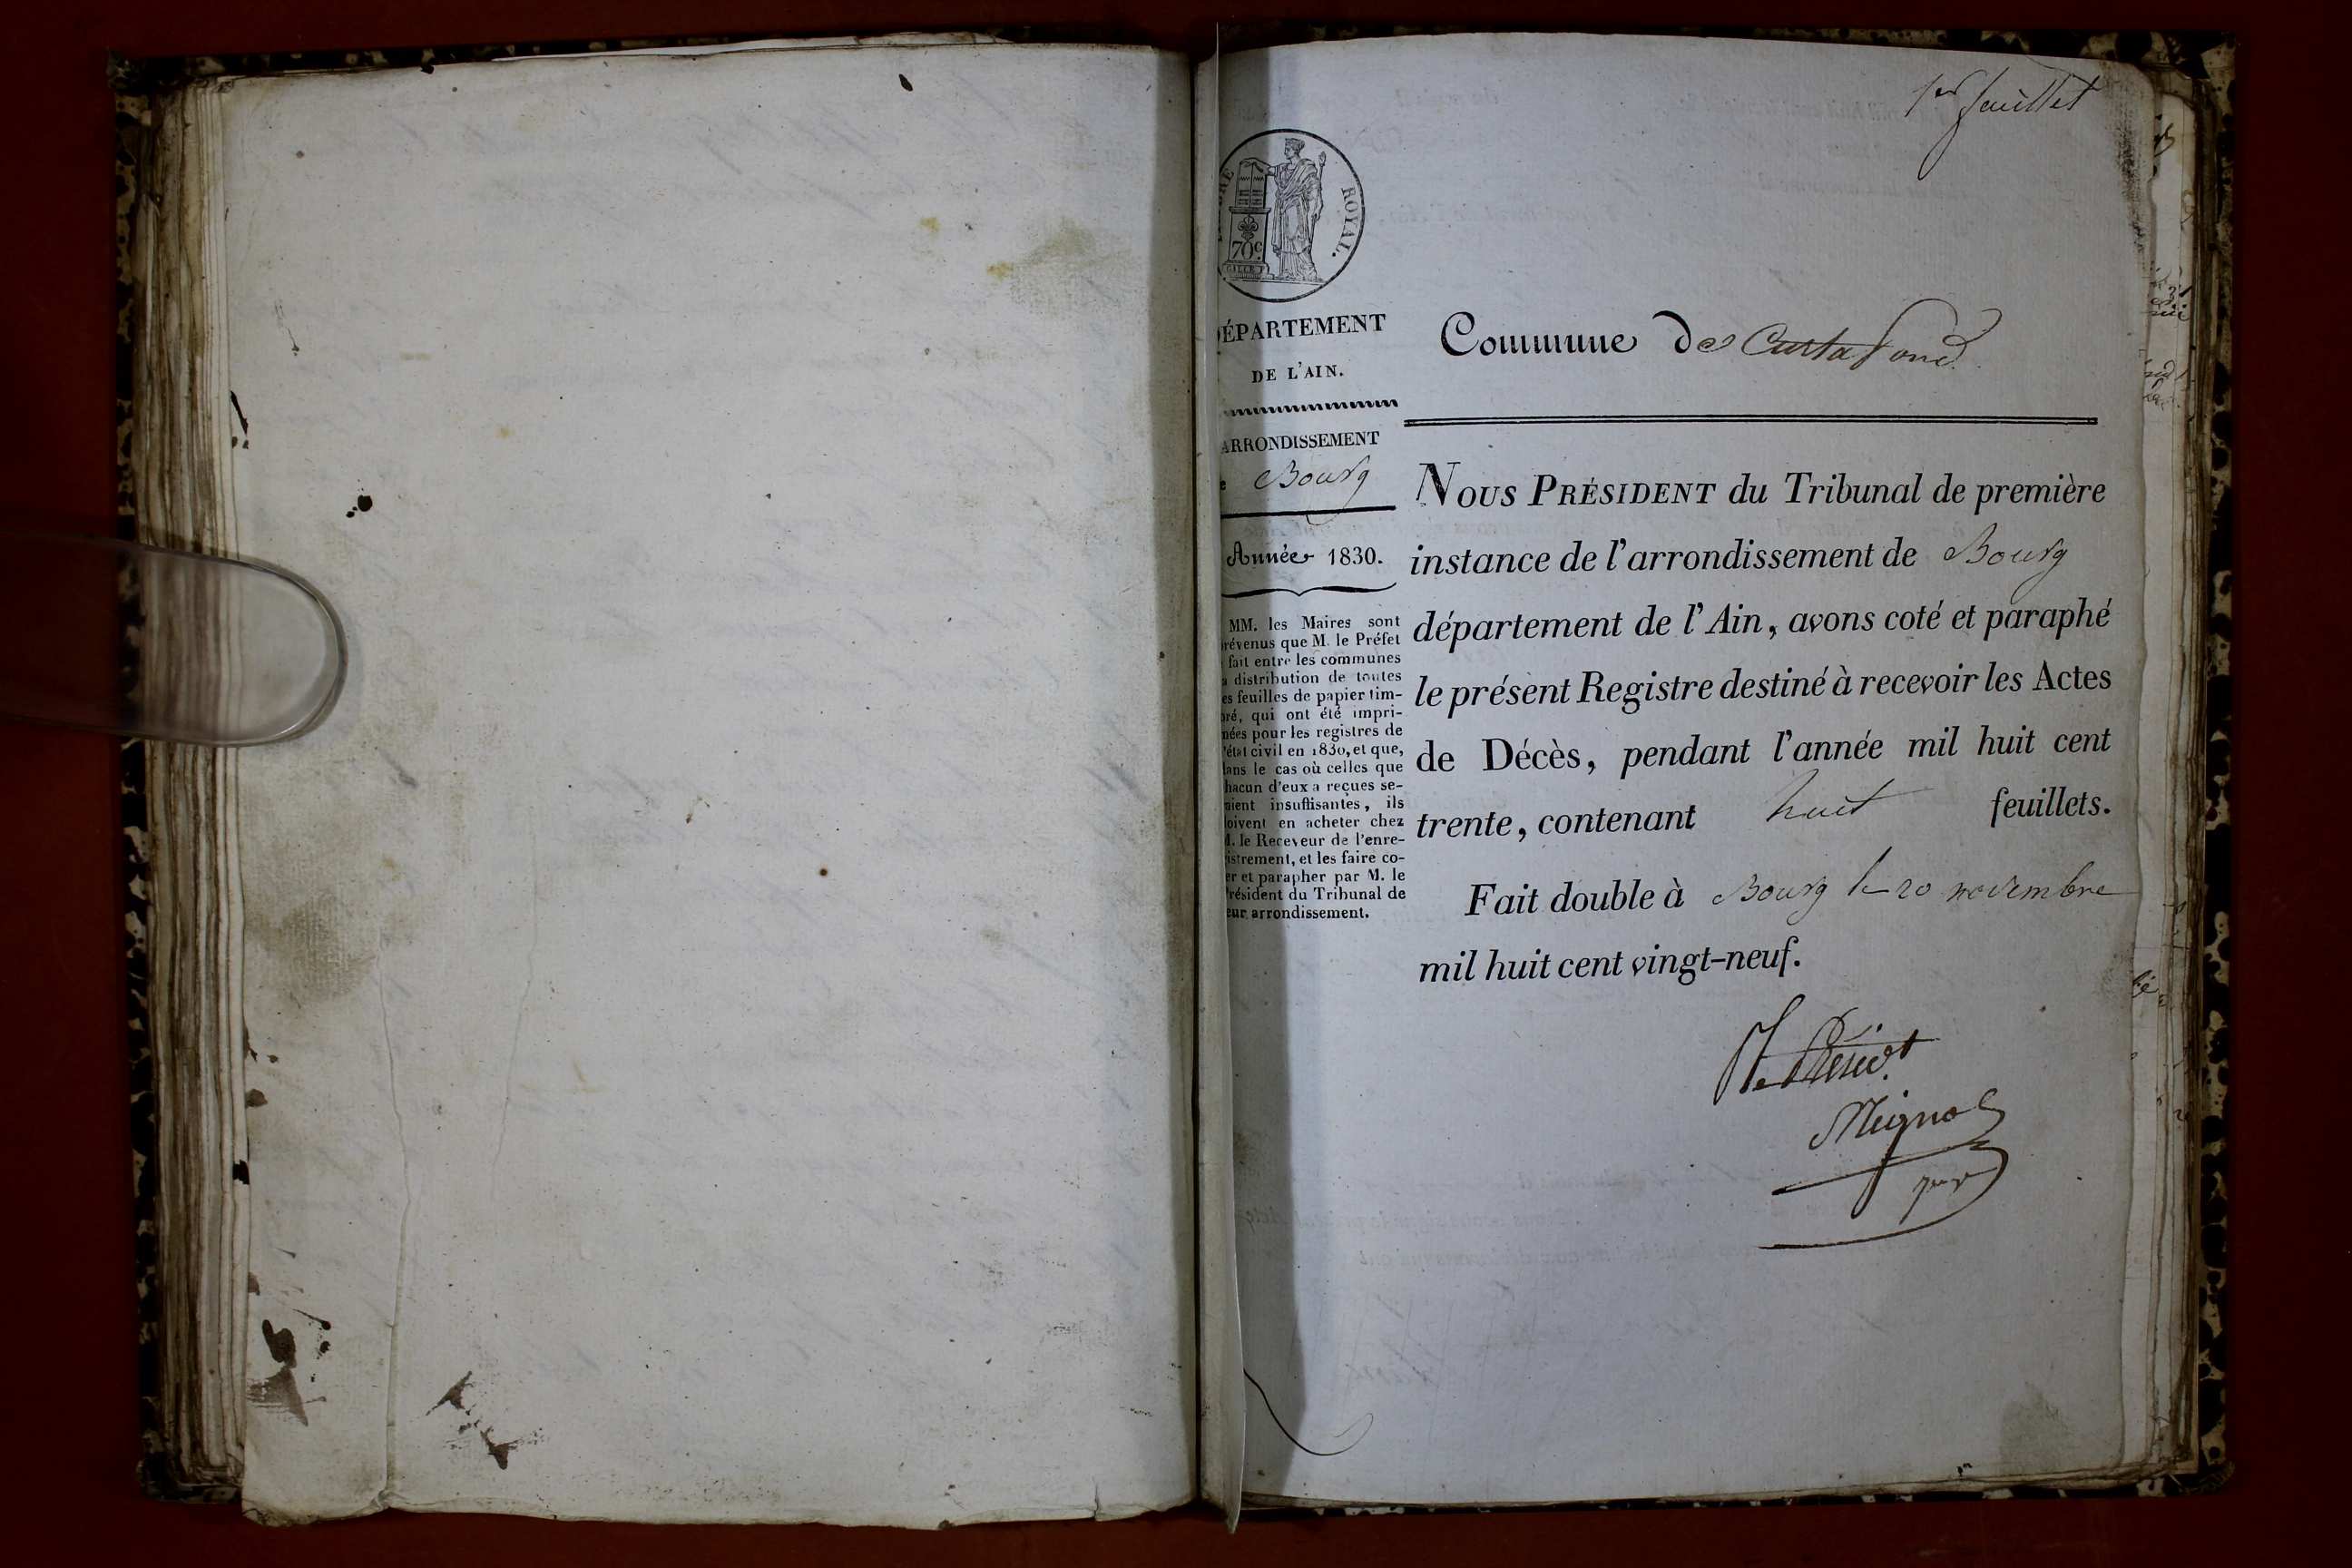 1er feuillet
ROYAL.
70c
DÉPARTEMENT
DE L'AIN.
ARRONDISSEMENT
Bourg
Année 1830.
MM. les Maires sont
prévenus que M. le Préfet
fait entre les communes
distribution de toutes
es feuilles de papier tim-
bré, qui ont été impri-
mées pour les registres de
l'état civil en 1830, et que,
dans le cas où celles que
chacun d'eux a reçues se-
raient insuffisantes, ils
doivent en acheter chez
M. le Receveur de l'enre-
gistrement, et les faire co-
ter et parapher par M. le
Président du Tribunal de
leur arrondissement.
Commune de Curtafond
NOUS PRÉSIDENT du Tribunal de première
instance de l'arrondissement de Bourg
département de l'Ain, avons coté et paraphé
le présent Registre destiné à recevoir les Actes
de Décès, pendant l'année mil huit cent
trente, contenant huit feuillets.
Fait double à Bourg le 20 novembre
mil huit cent vingt-neuf.
Le Présidt